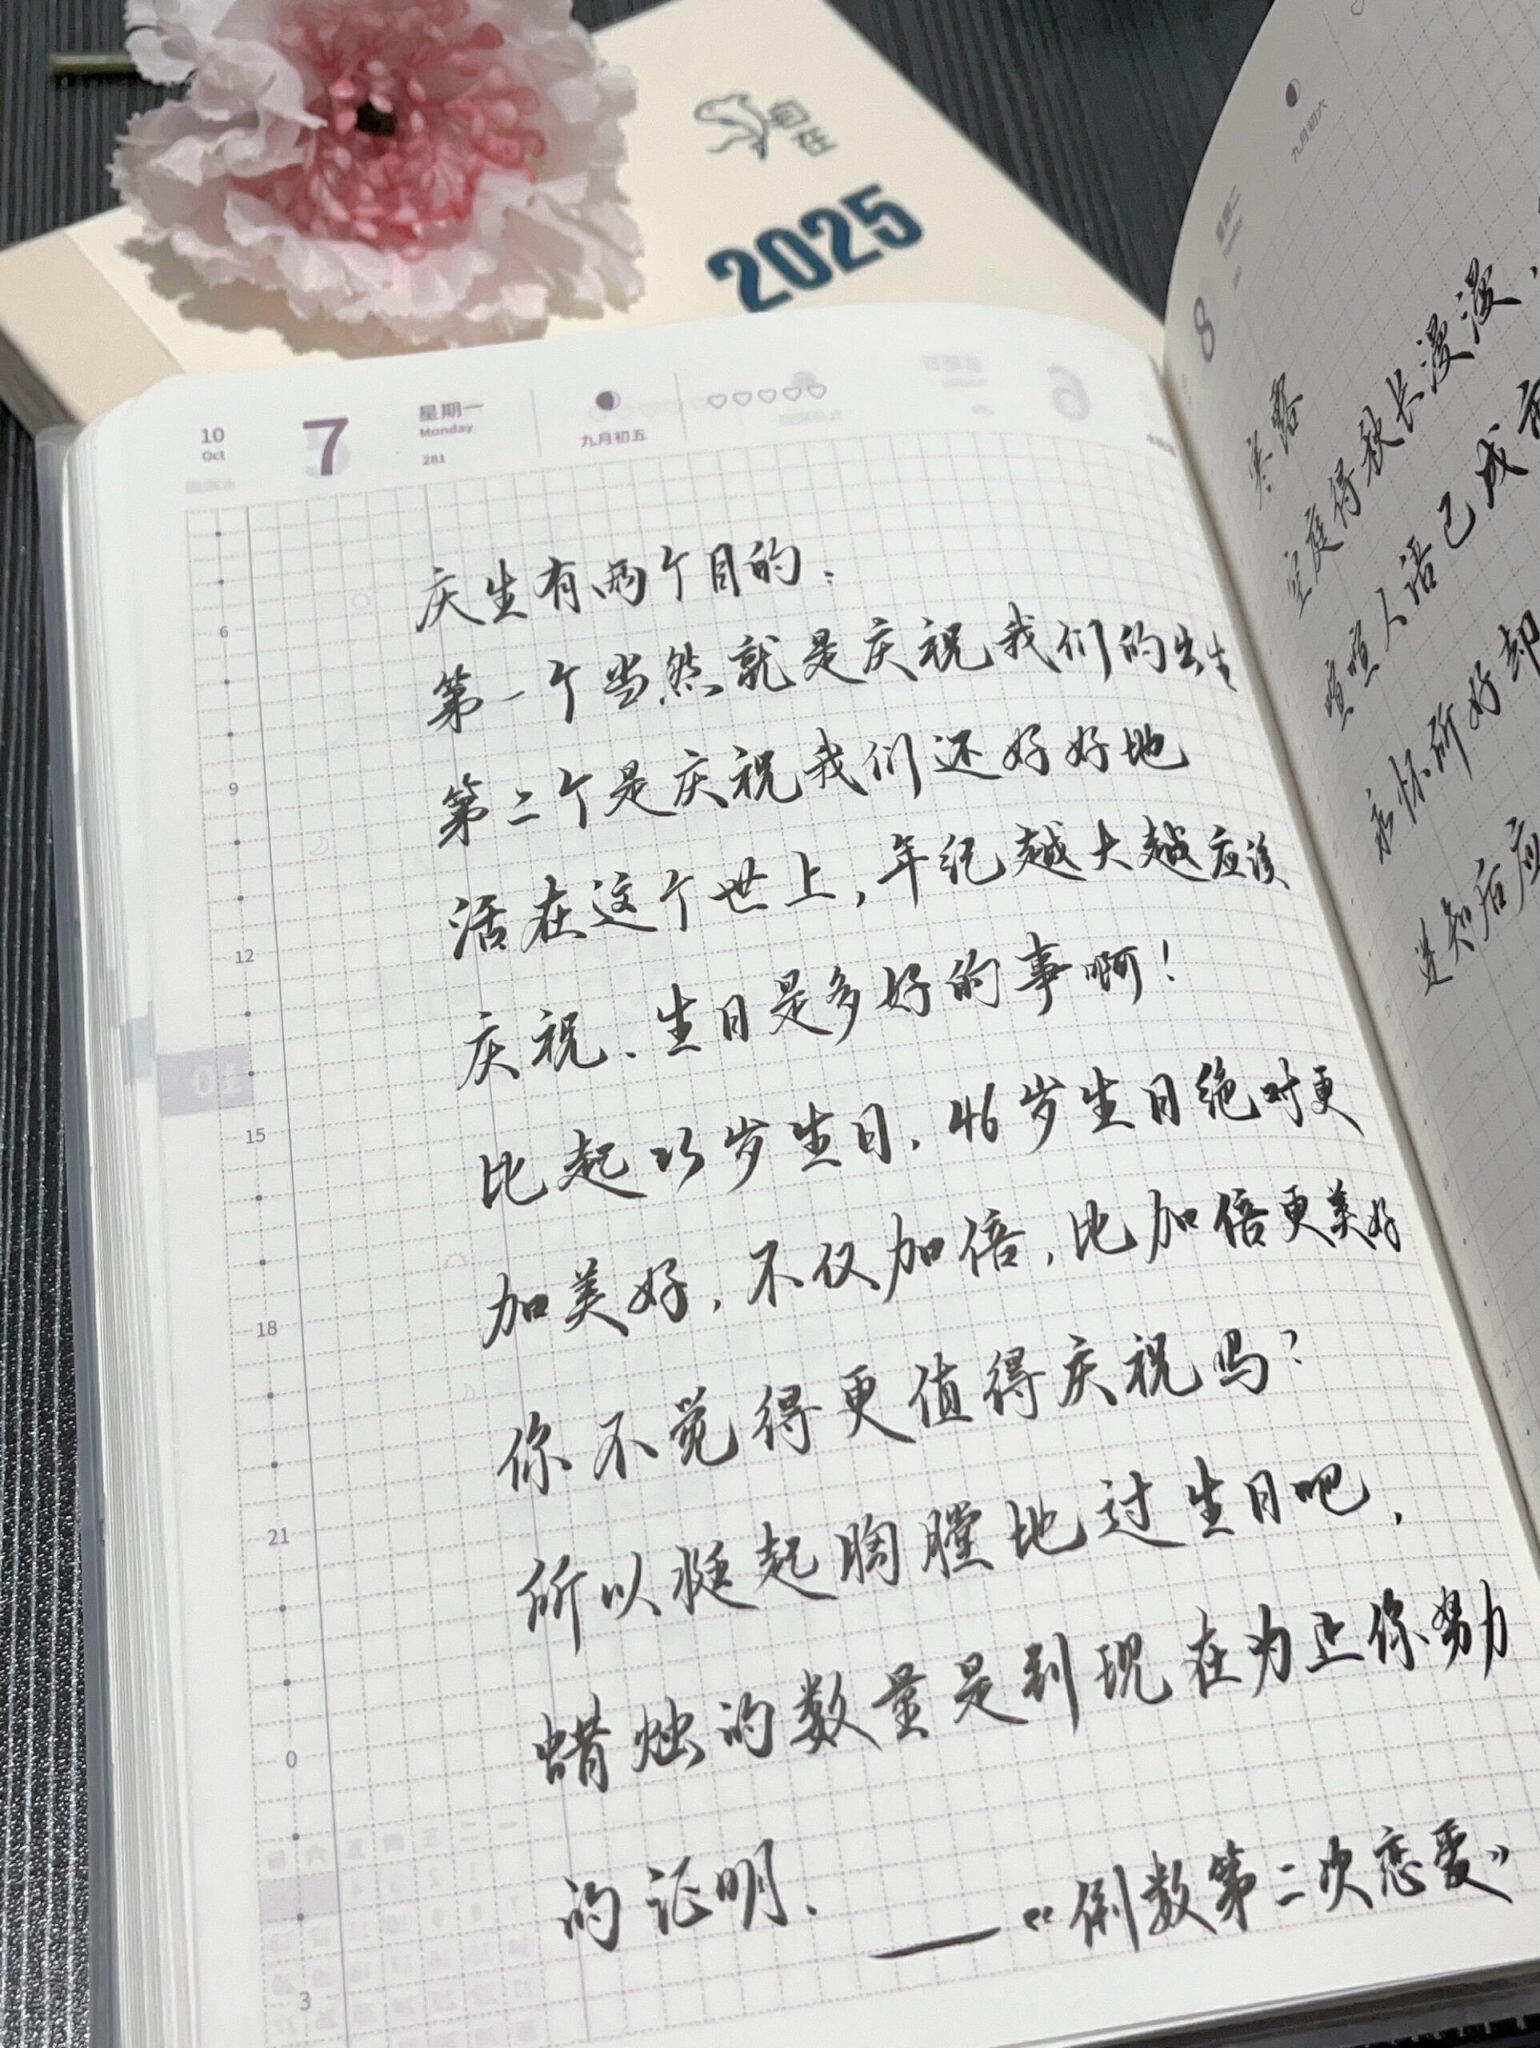 自在
2025
10
Oct
7
星期一
Monday
281
九月初五
庆生有两个目的:
第一个当然就是庆祝我们的出生
第二个是庆祝我们还好好地
活在这个世上,年纪越大越应该
庆祝、生日是多好的事啊!
比起23岁生日,46岁生日绝对更
加美好,不仅加倍,比加倍更美好
你不觉得更值得庆祝吗?
所以挺起胸膛地过生日吧,
蜡烛的数量是到现在为止你努力
的证明.
——《倒数第二次恋爱》
6
9
12
15
18
21
0
3
8
九月初六
星期二
寒露
空庭得秋长漫漫,
喧喧人语已成
永怀所好却